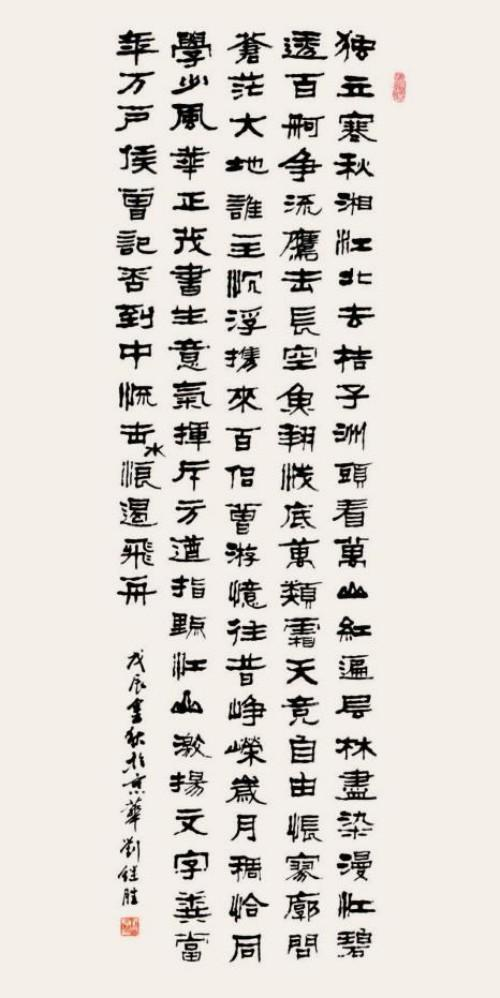 独立寒秋湘江北去桔子洲頭看萬山紅遍层林盡染漫江碧
透百舸争流鷹击長空魚翔浅底萬類霜天竞自由悵寥廓問
蒼茫大地誰主沉浮携來百侣曾游憶往昔峥嶸歲月稠恰同
學少風華正茂書生意氣揮斥方遒指點江山激揚文字糞當
年万户侯曾記否到中流击水浪遏飛舟
戊辰金秋於京華劉继胜